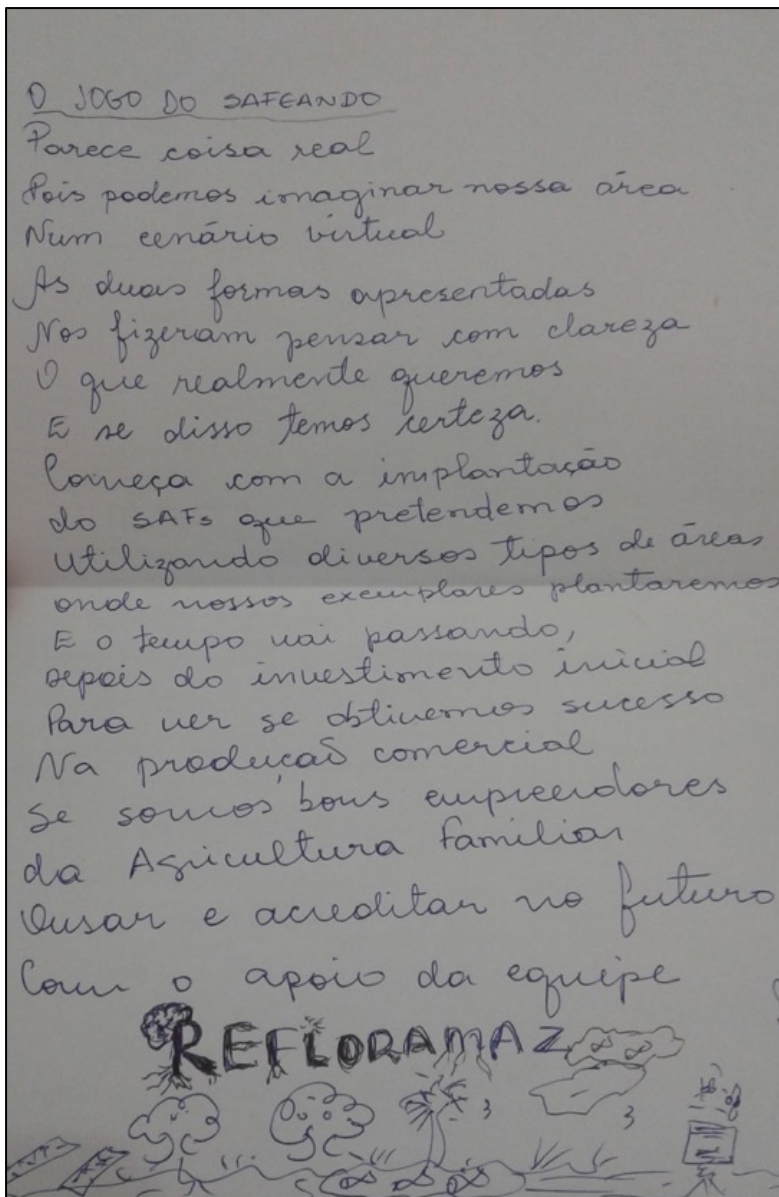 O JOGO DO SAFEANDO
Parece coisa real
Pois podemos imaginar nossa área
Num cenário virtual
As duas formas apresentadas
Nos fizeram pensar com clareza
O que realmente queremos
E se disso temos certeza.
Começa com a implantação
do SAFs que pretendemos
Utilizando diversos tipos de áreas
onde nossos exemplares plantaremos
E o tempo vai passando,
depois do investimento inicial
Para ver se obtivemos sucesso
Na produção comercial
Se somos bons empreendedores
da Agricultura Familiar
Ousar e acreditar no futuro
Com o apoio da equipe
REFLORAMAZ